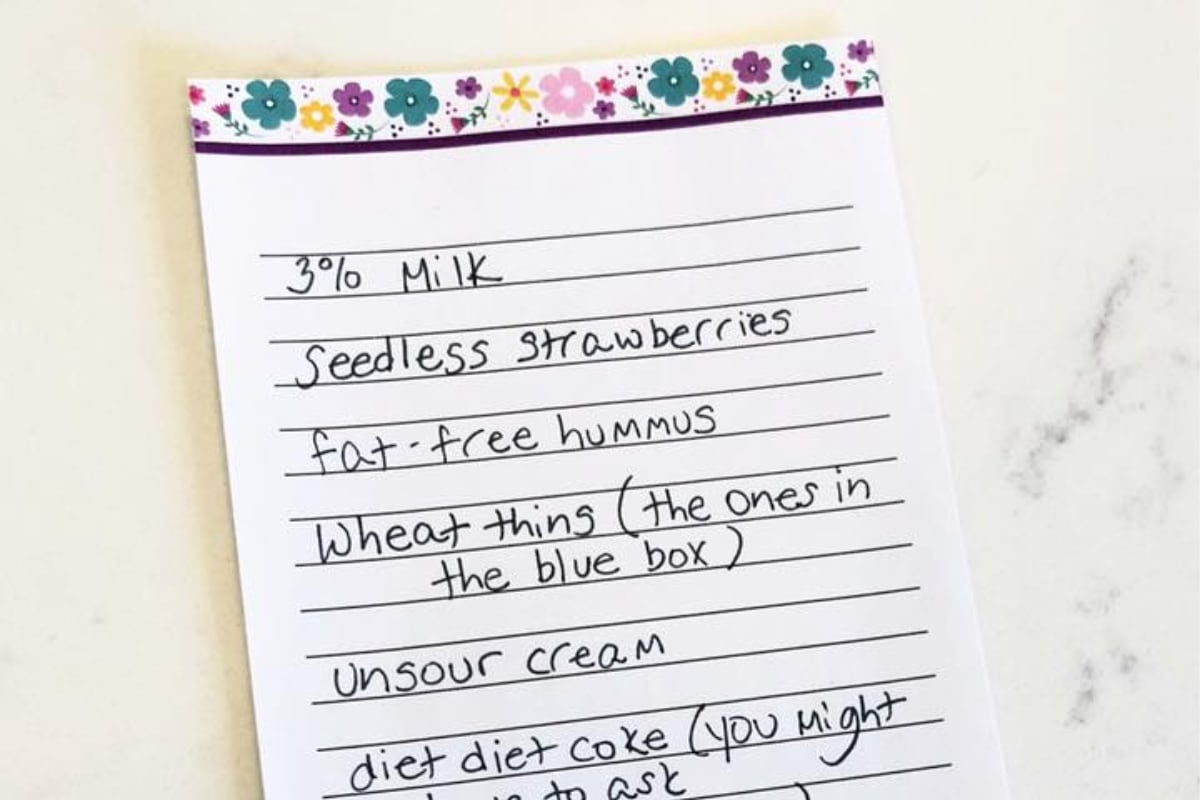 3% Milk
Seedless strawberries
fat-free hummus
Wheat thing (the ones in
the blue box)
unsour cream
diet diet coke (you might
to ask